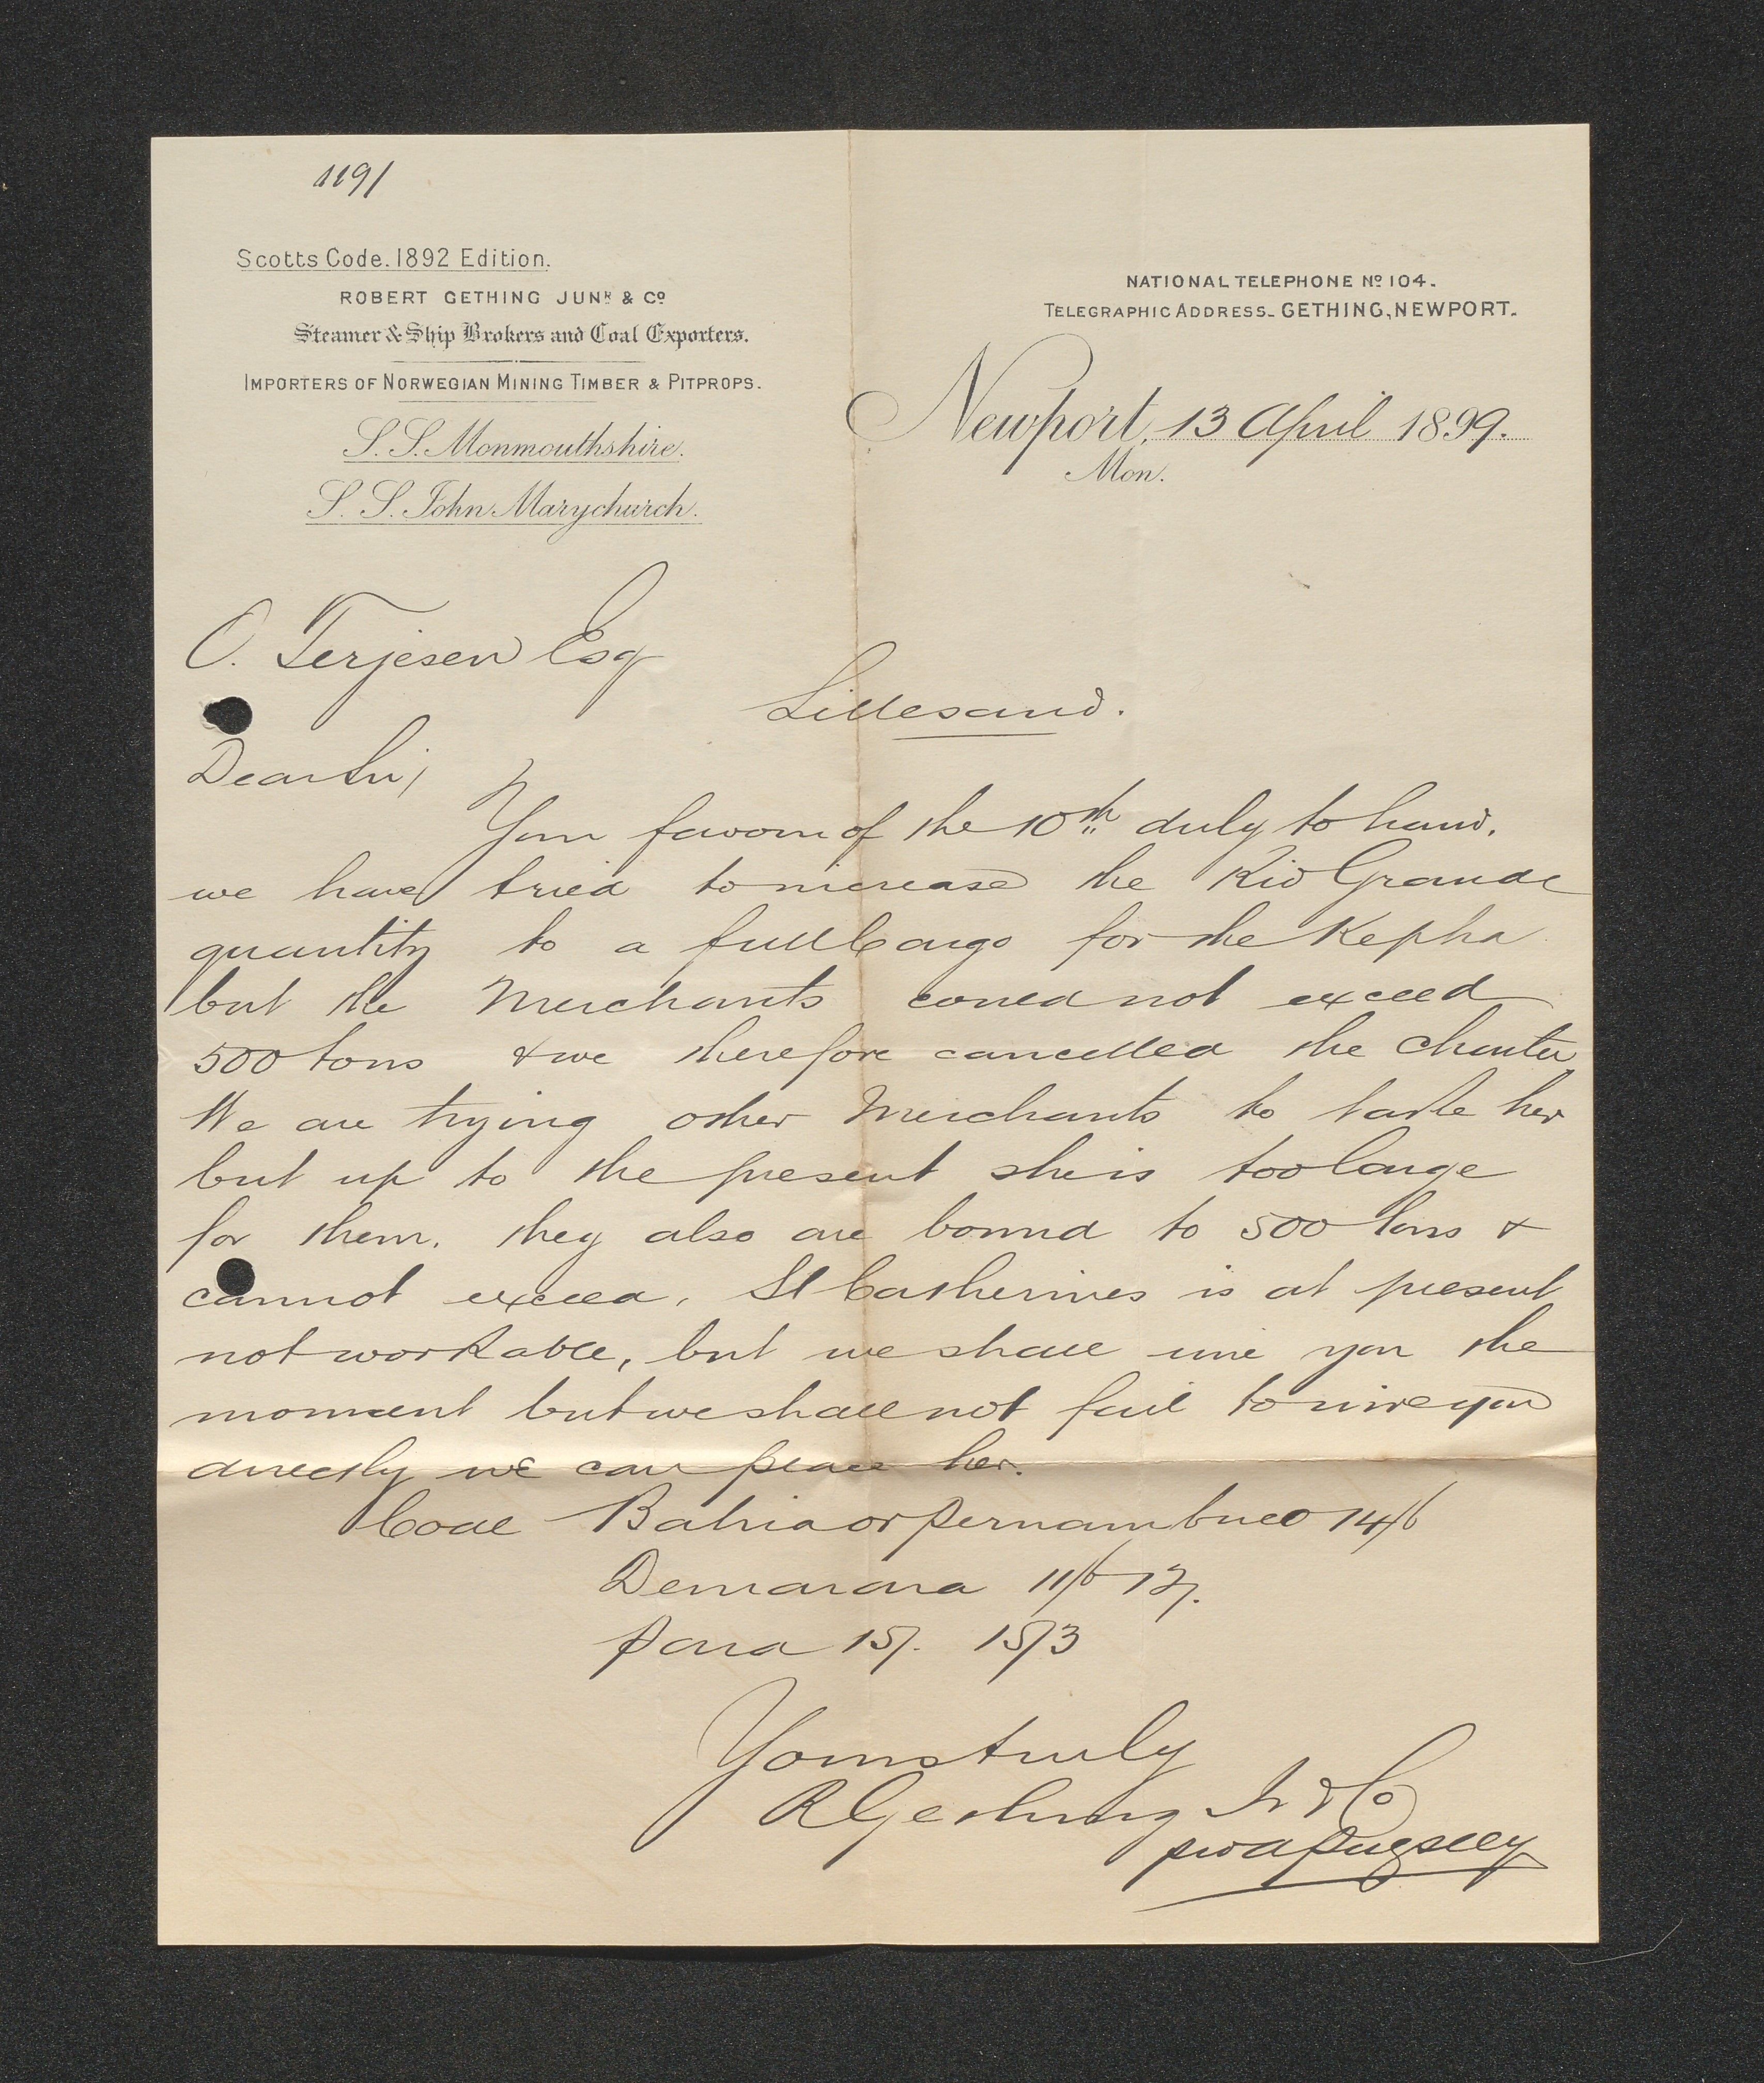 1191
Scotts Code. 1892 Edition.
ROBERT GETHING JUNR & CO
Steamer & Ship Brokers and Coal Exporters.
IMPORTERS OF NORWEGIAN MINING TIMBER & PITPROPS.
S. S. Monmouthshire.
S. S. John Marychurch.
NATIONAL TELEPHONE No 104.
TELEGRAPHIC ADDRESS. GETHING, NEWPORT.
Newport, 13 April 1899.
Mon.
O. Terjesen Esq
Lillesand.
Dear Sir,
Your favour of the 10th duly to hand.
we have tried to increase the Rio Grande
quantity to a full Cargo for the Kepha
but the Merchants could not exceed
500 tons & we therefore cancelled the Charter
We are trying other Merchants to take her
but up to the present she is too large
for them. they also are bound to 500 tons &
cannot exceed. St Catherines is at present
not workable, but we shall wire you the
moment but we shall not fail to wire you
directly we can place her.
Coal Bahia or Pernambuco 14/6
Demarara 11/6 12/.
Para 15/. 15/3
Yours truly
R Gething Jr & Co
pro A Pugsley